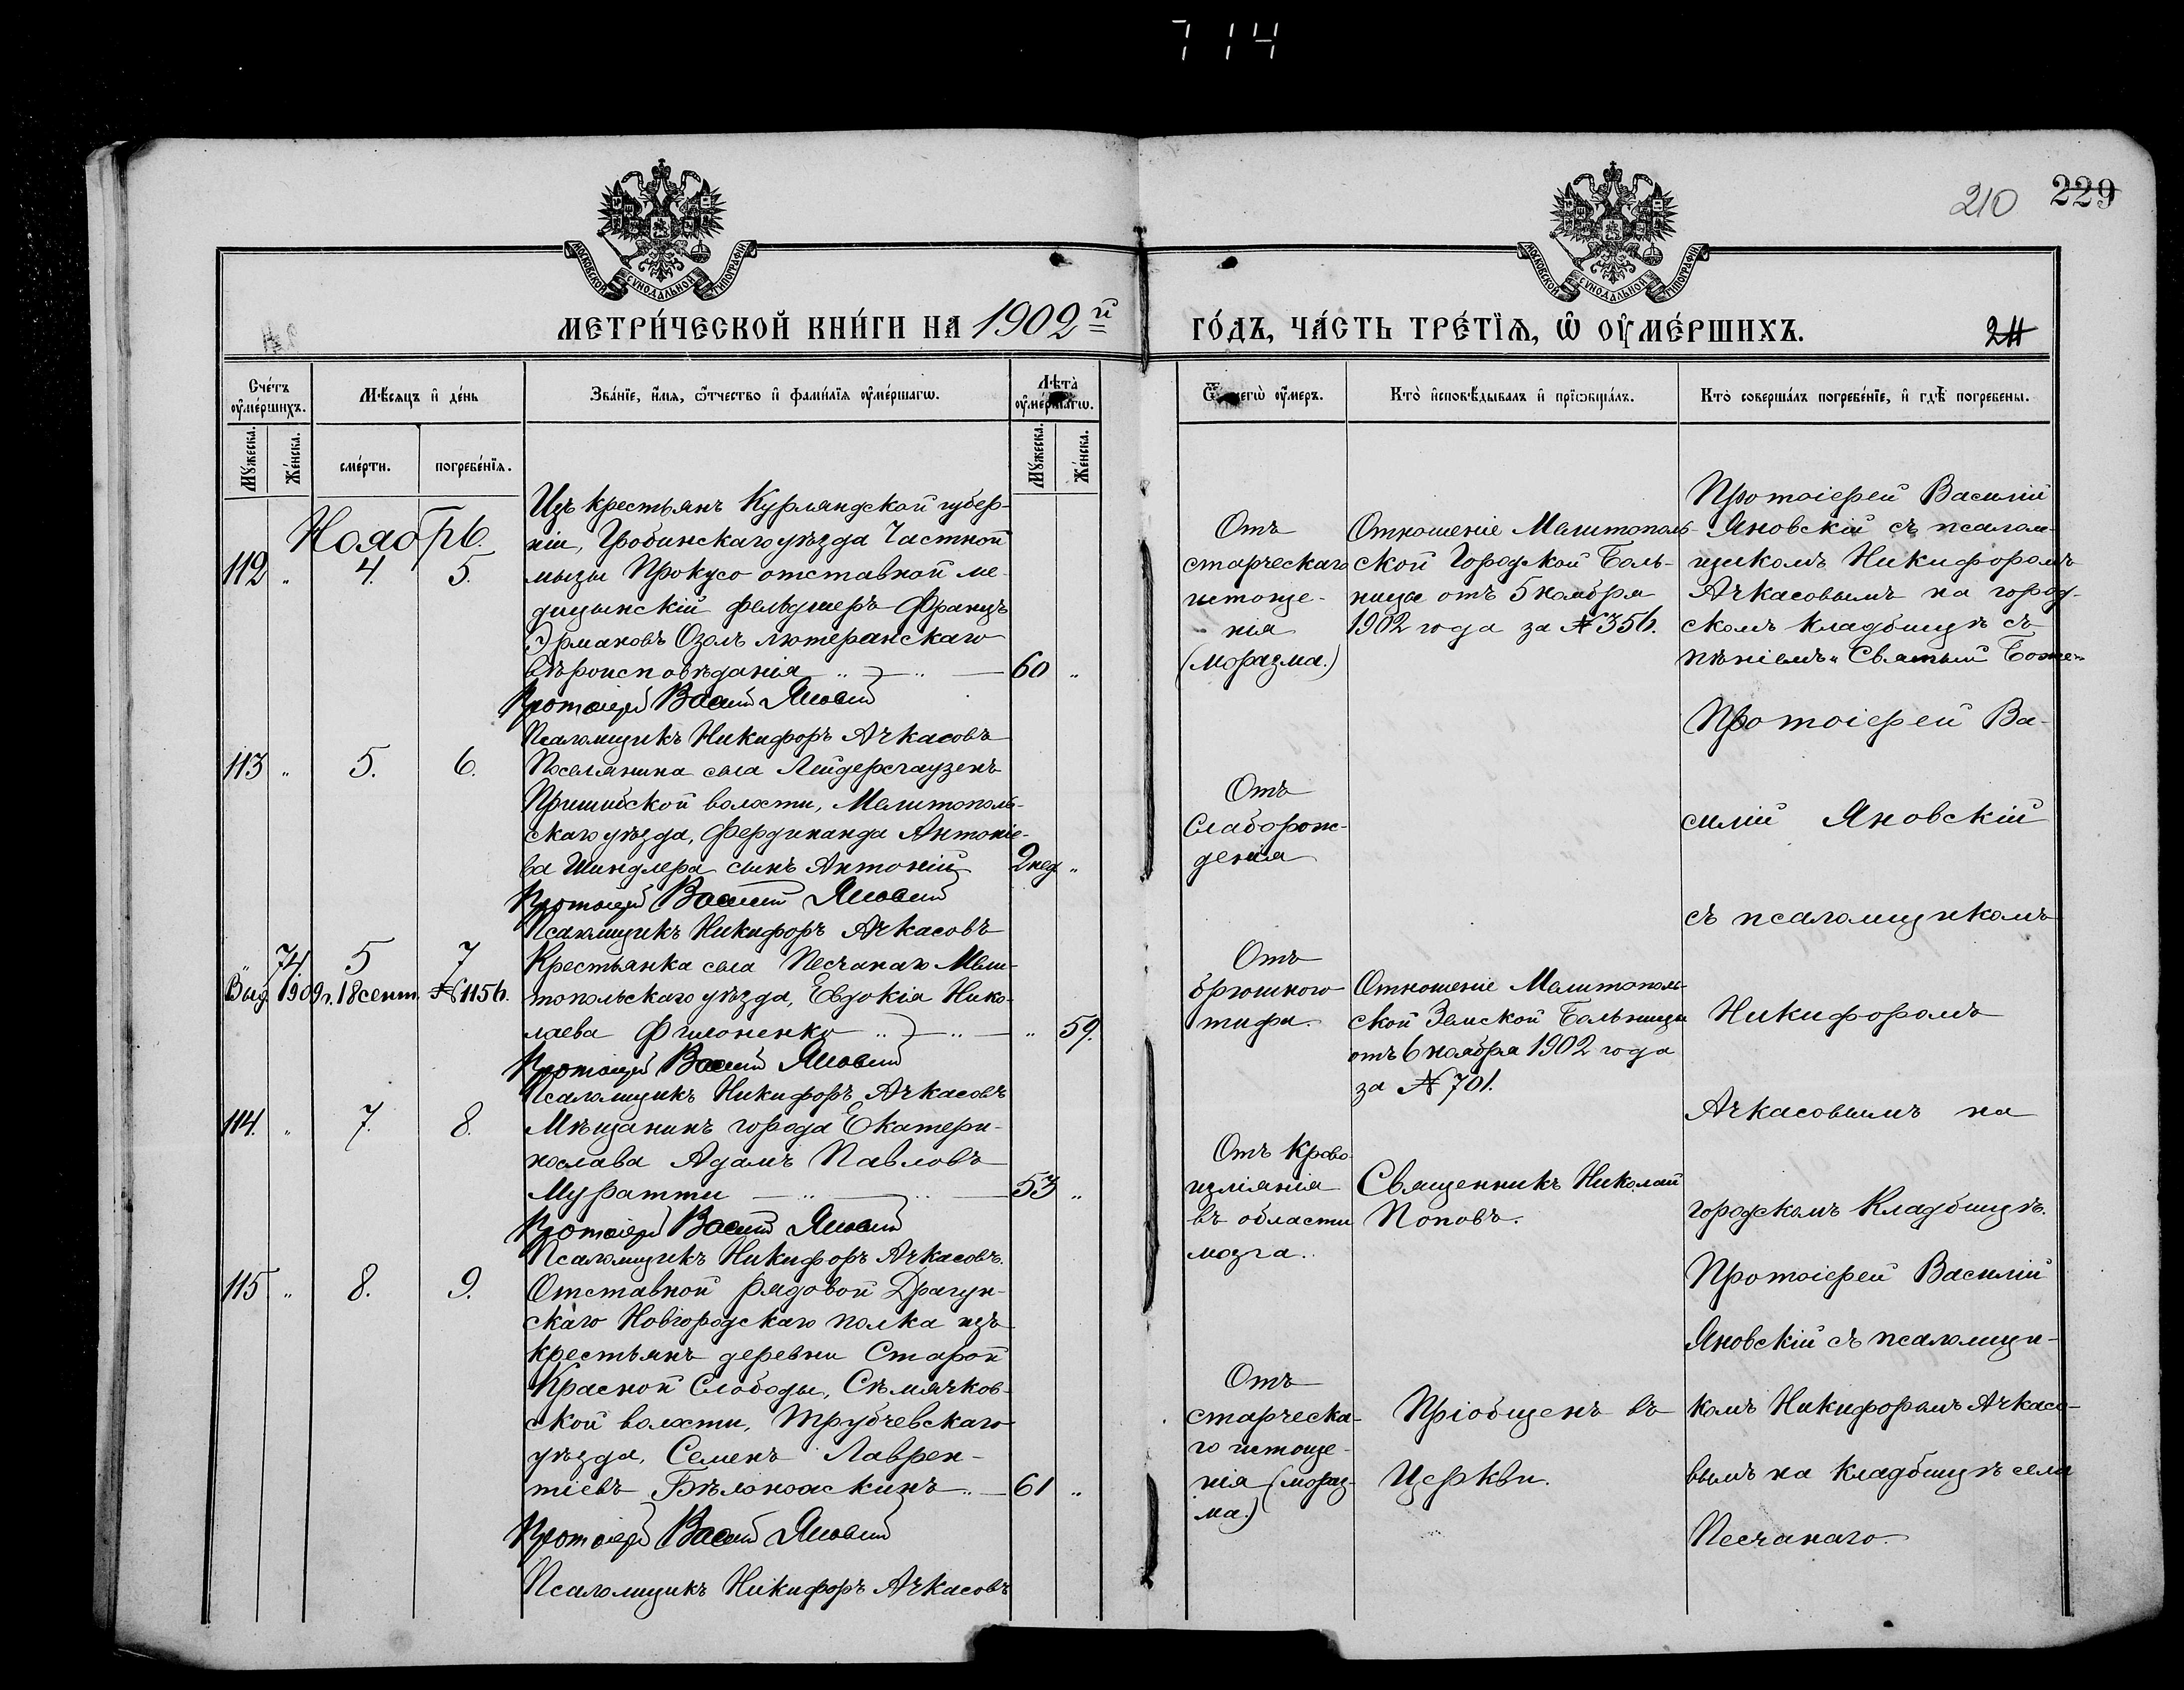 714
210 229
МОСКОВСКОЙ СѴНОДАЛЬНОЙ ТИПОГРАФІИ
МОСКОВСКОЙ СѴНОДАЛЬНОЙ ТИПОГРАФІИ
МЕТРИ́ЧЕСКОЙ КНИ́ГИ НА 1902й
ГО́ДЪ, ЧА́СТЬ ТРЕ́ТЇѦ, Ѡ ОУ҆МЕ́РШИХЪ.
Сче́тъ оу҆ме́ршихъ.
Мѣ́сяцъ и҆ де́нь
Зва́нїе, и҆́мѧ, ѻ҆́тчество и҆ фами́лїѧ оу҆ме́ршагѡ.
Лѣ́та оу҆ме́ршагѡ.
Ѿ чегѡ̀ оу҆́меръ.
Кто̀ и҆сповѣ́дывалъ и҆ прїѡбща́лъ.
Кто̀ соверша́лъ погребе́нїе, и҆ гдѣ̀ погребены.
Мꙋ́жеска.
Же́нска.
сме́рти.
погребе́нїѧ.
Мꙋ́жеска.
Же́нска.
Ноябрь.
112 " 4. 5.
Изъ крестьянъ Курляндской губер-
ніи, Гробинскаго уѣзда Частной
мызы Прокусо отставной ме-
дицынскій фельдшеръ Францъ
Эрмановъ Озолъ лютеранскаго
вѣроисповѣданія 60 "
Протоіерей Василій Яновскій
Псаломщикъ Никифоръ Ачкасовъ
Отъ
старческаго
истоще-
нія
(моразма.)
Отношеніе Мелитополь-
ской Городской Боль-
ницы отъ 5 ноября
1902 года за № 356.
Протоіерей Василій
Яновскій съ псалом-
щикомъ Никифоромъ
Ачкасовымъ на город-
скомъ кладбищѣ съ
пѣніемъ „Святый Боже"
113 " 5. 6.
Поселянина села Лейдерсгаузенъ
Пришибской волости, Мелитополь-
скаго уѣзда, Фердинанда Антоніе-
ва Шиндлера сынъ Антоній 2 нед "
Протоіерей Василій Яновскій
Псаломщикъ Никифоръ Ачкасовъ
Отъ
Слаборож-
денія
Протоіерей Ва-
силій Яновскій
съ псаломщикомъ
Никифоромъ
Ачкасовымъ на
городскомъ Кладбищѣ.
" 74. 5 7
Выд. 1909 г. 18 сент. № 1156.
Крестьянка села Песчанаго Мели-
топольскаго уѣзда, Евдокія Нико-
лаева Филоненко " 59.
Протоіерей Василій Яновскій
Псаломщикъ Никифоръ Ачкасовъ
Отъ
брюшного
тифа.
Отношеніе Мелитополь-
ской Земской Больницы
отъ 6 ноября 1902 года
за № 701.
114. " 7. 8.
Мѣщанинъ города Екатери-
нослава Адамъ Павловъ
Муратти 53 "
Протоіерей Василій Яновскій
Псаломщикъ Никифоръ Ачкасовъ.
Отъ Крово-
изліянія
въ области
мозга.
Священникъ Николай
Поповъ.
115 " 8. 9.
Отставной рядовой Драгун-
скаго Новгородскаго полка изъ
крестьянъ деревни Старой
Красной Слободы, Сѣмячков-
ской волости, Трубчевскаго
уѣзда, Семенъ Лаврен-
тіевъ 61 "
Протоіерей Василій Яновскій
Псаломщикъ Никифоръ Ачкасовъ
Отъ
старческа-
го истоще-
нія (мораз-
ма.)
Пріобщенъ въ
Церкви.
Протоіерей Василій
Яновскій съ псаломщи-
комъ Никифоромъ Ачкасо-
вымъ на кладбищѣ села
Песчанаго.